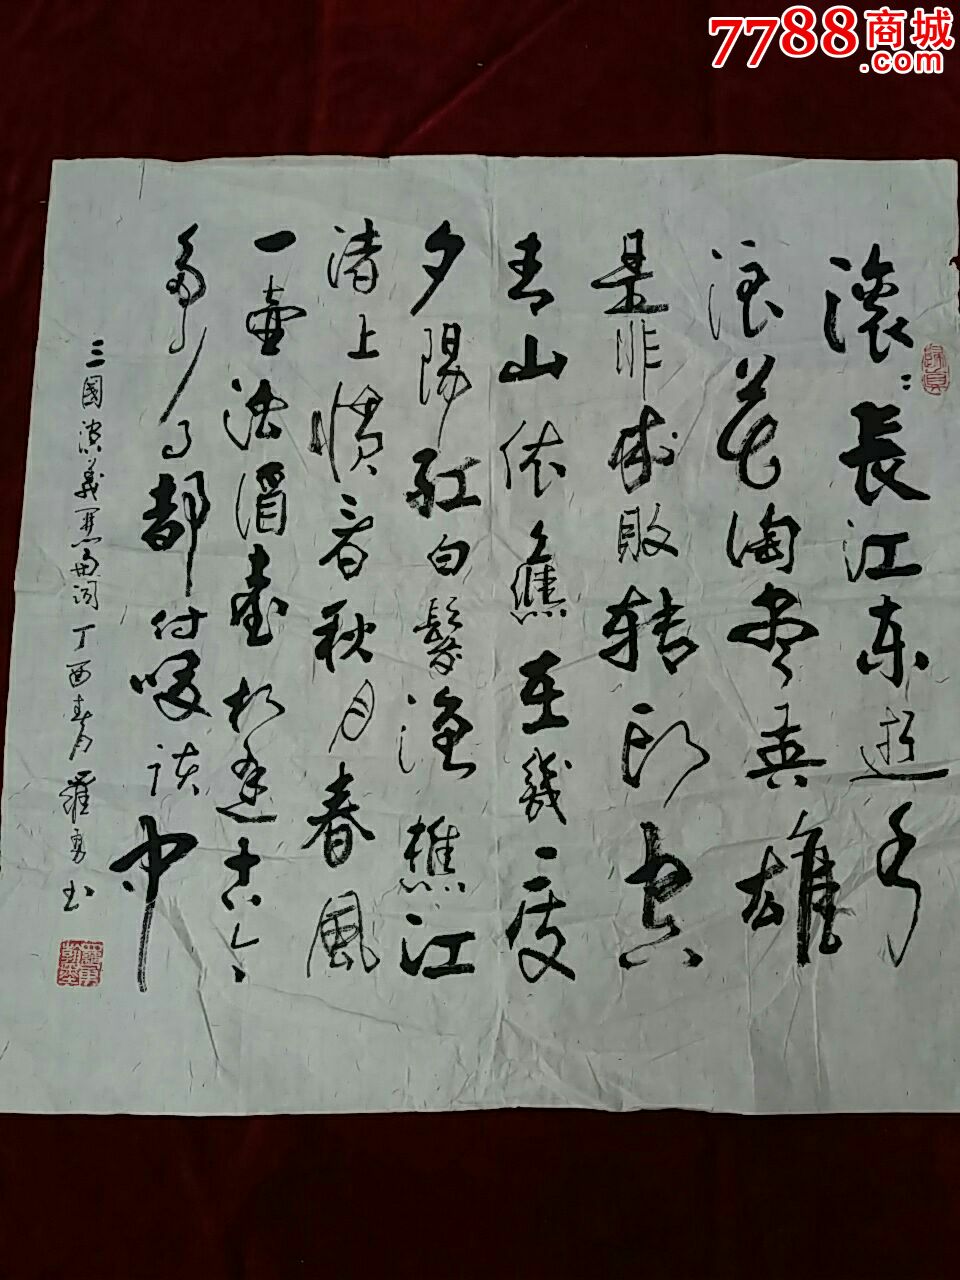 7788商城
.com
滚:長江东逝水
浪花淘尽英雄
是非成败转头空
青山依舊在幾度
夕陽红白髮渔樵江
渚上惯看秋月春風
一壶浊酒喜相逢古今
多少事都付笑谈中
三國演義開篇词 丁酉春月 羅勇书